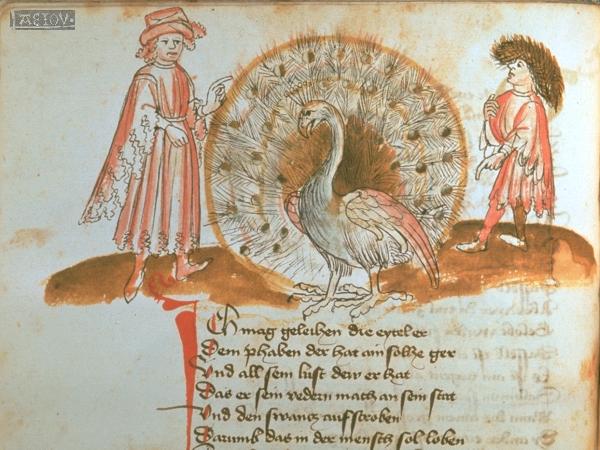 ΑΕΤΟΥ
Ich mag geleihen die eytel er
Dem phaben der hat ain solhe ger
Vnd all sein lust dew er hat
Das er sein vedern mach an sein stat
Vnd den swantz auf stroben
Darumb das in der mensch sol loben